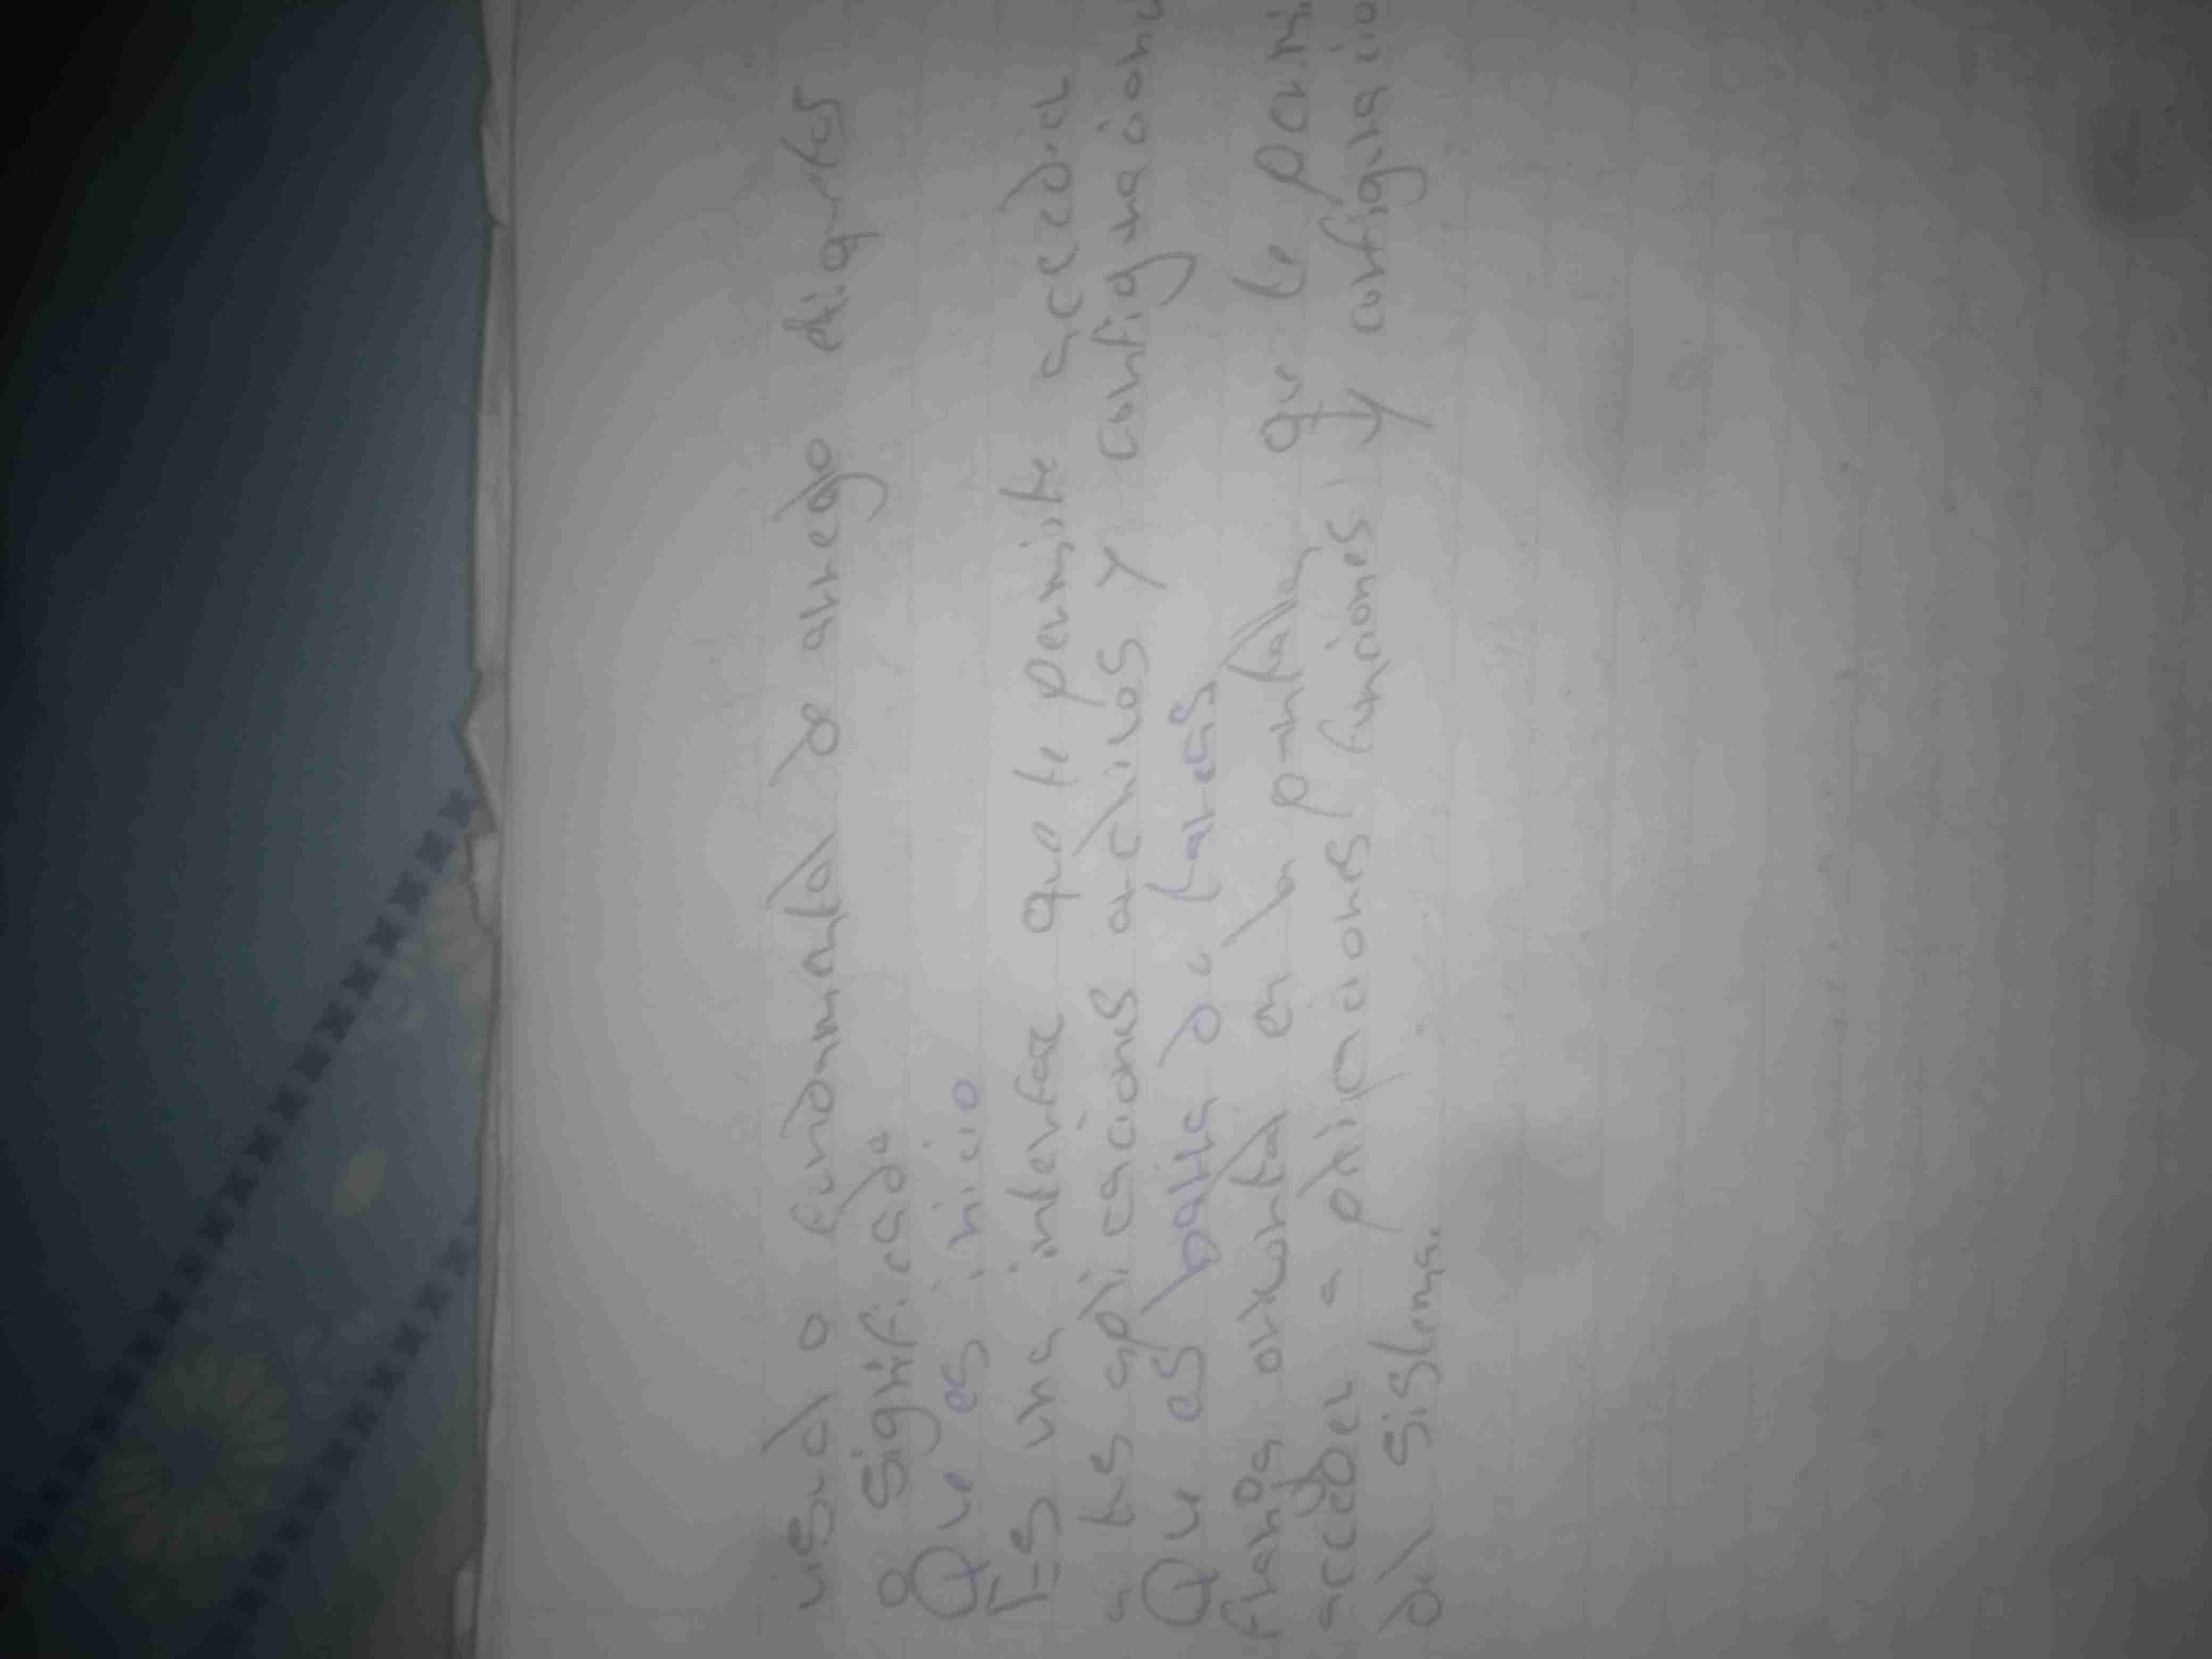 visual o fundamental de arego
o significado
Que es inicio
Es una interfaz que te permite acceder
a tus aplicaciones archivos y configuracione
Que es balla de tareas
Franja orixontal en la pantalla que te permi
acceder a aplicaciones funciones y configuracio
del sistema.